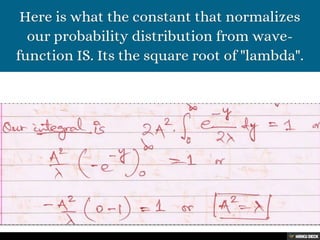 Here is what the constant that normalizes
our probability distribution from wave-
function IS. Its the square root of "lambda".
Our integral is 2A². ∫₀^∞ e^{-y}/2λ dy = 1 or
A²/λ (-e^{-y})₀^∞ = 1 or
-A²/λ (0-1) = 1 or A² = λ